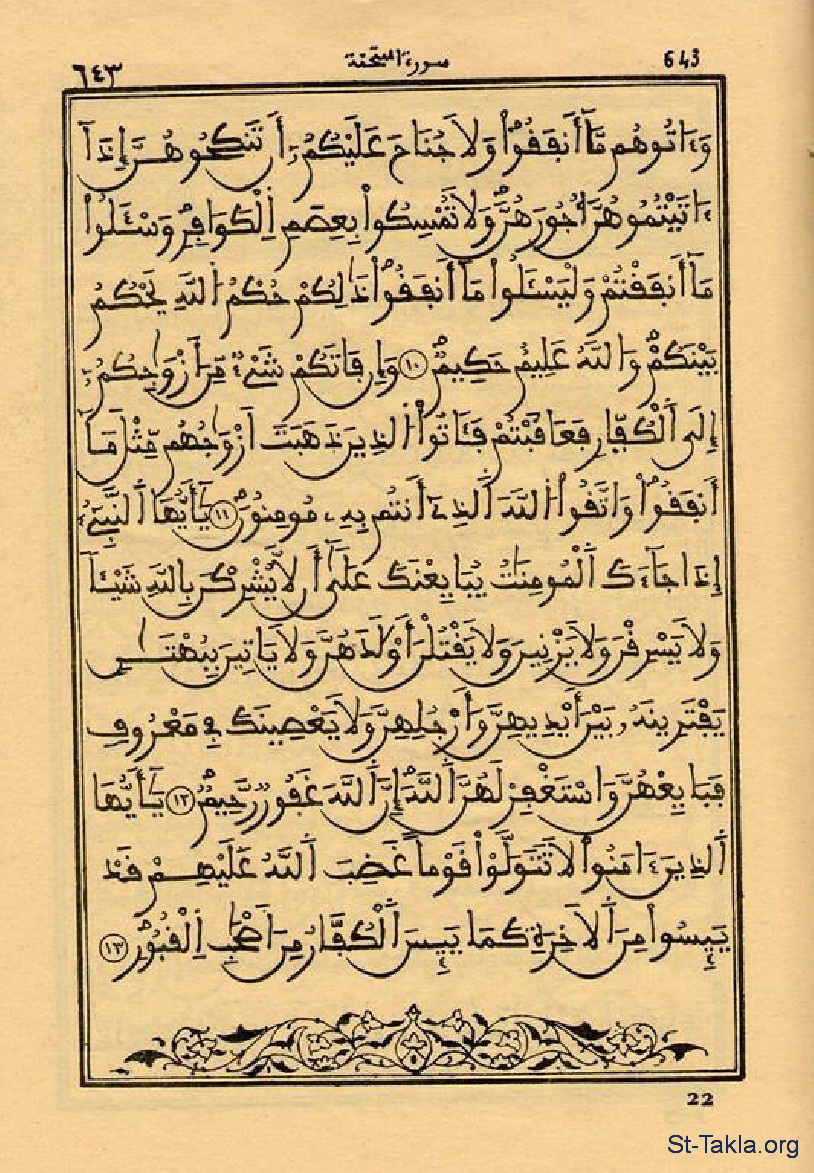 ٦٤٣ سورة الممتحنة 643
وَءَاتُوهُم مَّآ أَنفَقُواْ وَلَا جُنَاحَ عَلَيْكُمُۥٓ أَن تَنكِحُوهُنَّ إِذَآ
ءَاتَيْتُمُوهُنَّ أُجُورَهُنَّ وَلَا تُمْسِكُواْ بِعِصَمِ اِ۬لْكَوَافِرِ وَسْـَٔلُواْ
مَآ أَنفَقْتُمْ وَلْيَسْـَٔلُواْ مَآ أَنفَقُواْ ذَٰلِكُمْ حُكْمُ اُ۬للَّهِ يَحْكُمُ
بَيْنَكُمْ وَاللَّهُ عَلِيمٌ حَكِيمٌ ١٠ وَإِن فَاتَكُمْ شَےْءٞ مِّنَ اَزْوَٰجِكُمُۥٓ
إِلَى اَ۬لْكُفَّارِ فَعَاقَبْتُمْ فَـَٔاتُواْ اُ۬لذِينَ ذَهَبَتَ اَزْوَٰجُهُم مِّثْلَ مَآ
أَنفَقُواْ وَاتَّقُواْ اُ۬للَّهَ اَ۬لذِےٓ أَنتُم بِهِۦ مُومِنُونَ ١١ يَٰٓأَيُّهَا اَ۬لنَّبِےٓءُ
اِ۪ذَا جَآءَكَ اَ۬لْمُومِنَٰتُ يُبَايِعْنَكَ عَلَىٰٓ أَن لَّا يُشْرِكْنَ بِاللَّهِ شَيْـٔاٗ
وَلَا يَسْرِقْنَ وَلَا يَزْنِينَ وَلَا يَقْتُلْنَ أَوْلَٰدَهُنَّ وَلَا يَاتِينَ بِبُهْتَٰنٖ
يَفْتَرِينَهُۥ بَيْنَ أَيْدِيهِنَّ وَأَرْجُلِهِنَّ وَلَا يَعْصِينَكَ فِے مَعْرُوفٖ
فَبَايِعْهُنَّ وَاسْتَغْفِرْ لَهُنَّ اَ۬للَّهَ إِنَّ اَ۬للَّهَ غَفُورٞ رَّحِيمٞ ١٢ يَٰٓأَيُّهَا
اَ۬لذِينَ ءَامَنُواْ لَا تَتَوَلَّوْاْ قَوْماً غَضِبَ اَ۬للَّهُ عَلَيْهِمْ قَدْ
يَئِسُواْ مِنَ اَ۬لَاخِرَةِ كَمَا يَئِسَ اَ۬لْكُفَّارُ مِنَ اَصْحَٰبِ اِ۬لْقُبُورِ ١٣
22
St-Takla.org